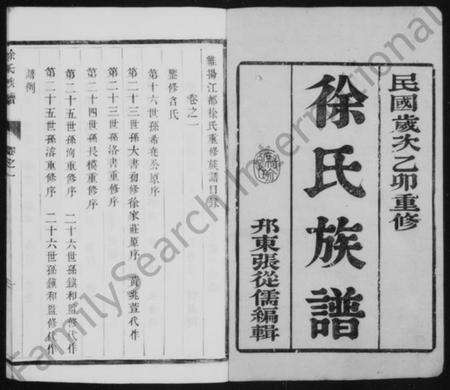 民國歲次乙卯重修
徐氏族譜
邗東張從儒編輯
維揚江都徐氏重修族譜目錄
卷之一
鑒修名氏
第十六世孫希堯公原序
第二十三世孫大書初修徐家莊原序 黃兆萱代作
第二十三世孫洛書重修序
第二十四世孫長模重修序
第二十五世孫洧重修序 二十六世孫鎮和監修代作
第二十五世孫洛重修序 二十六世孫鎮和監修代作
譜例
FamilySearch International